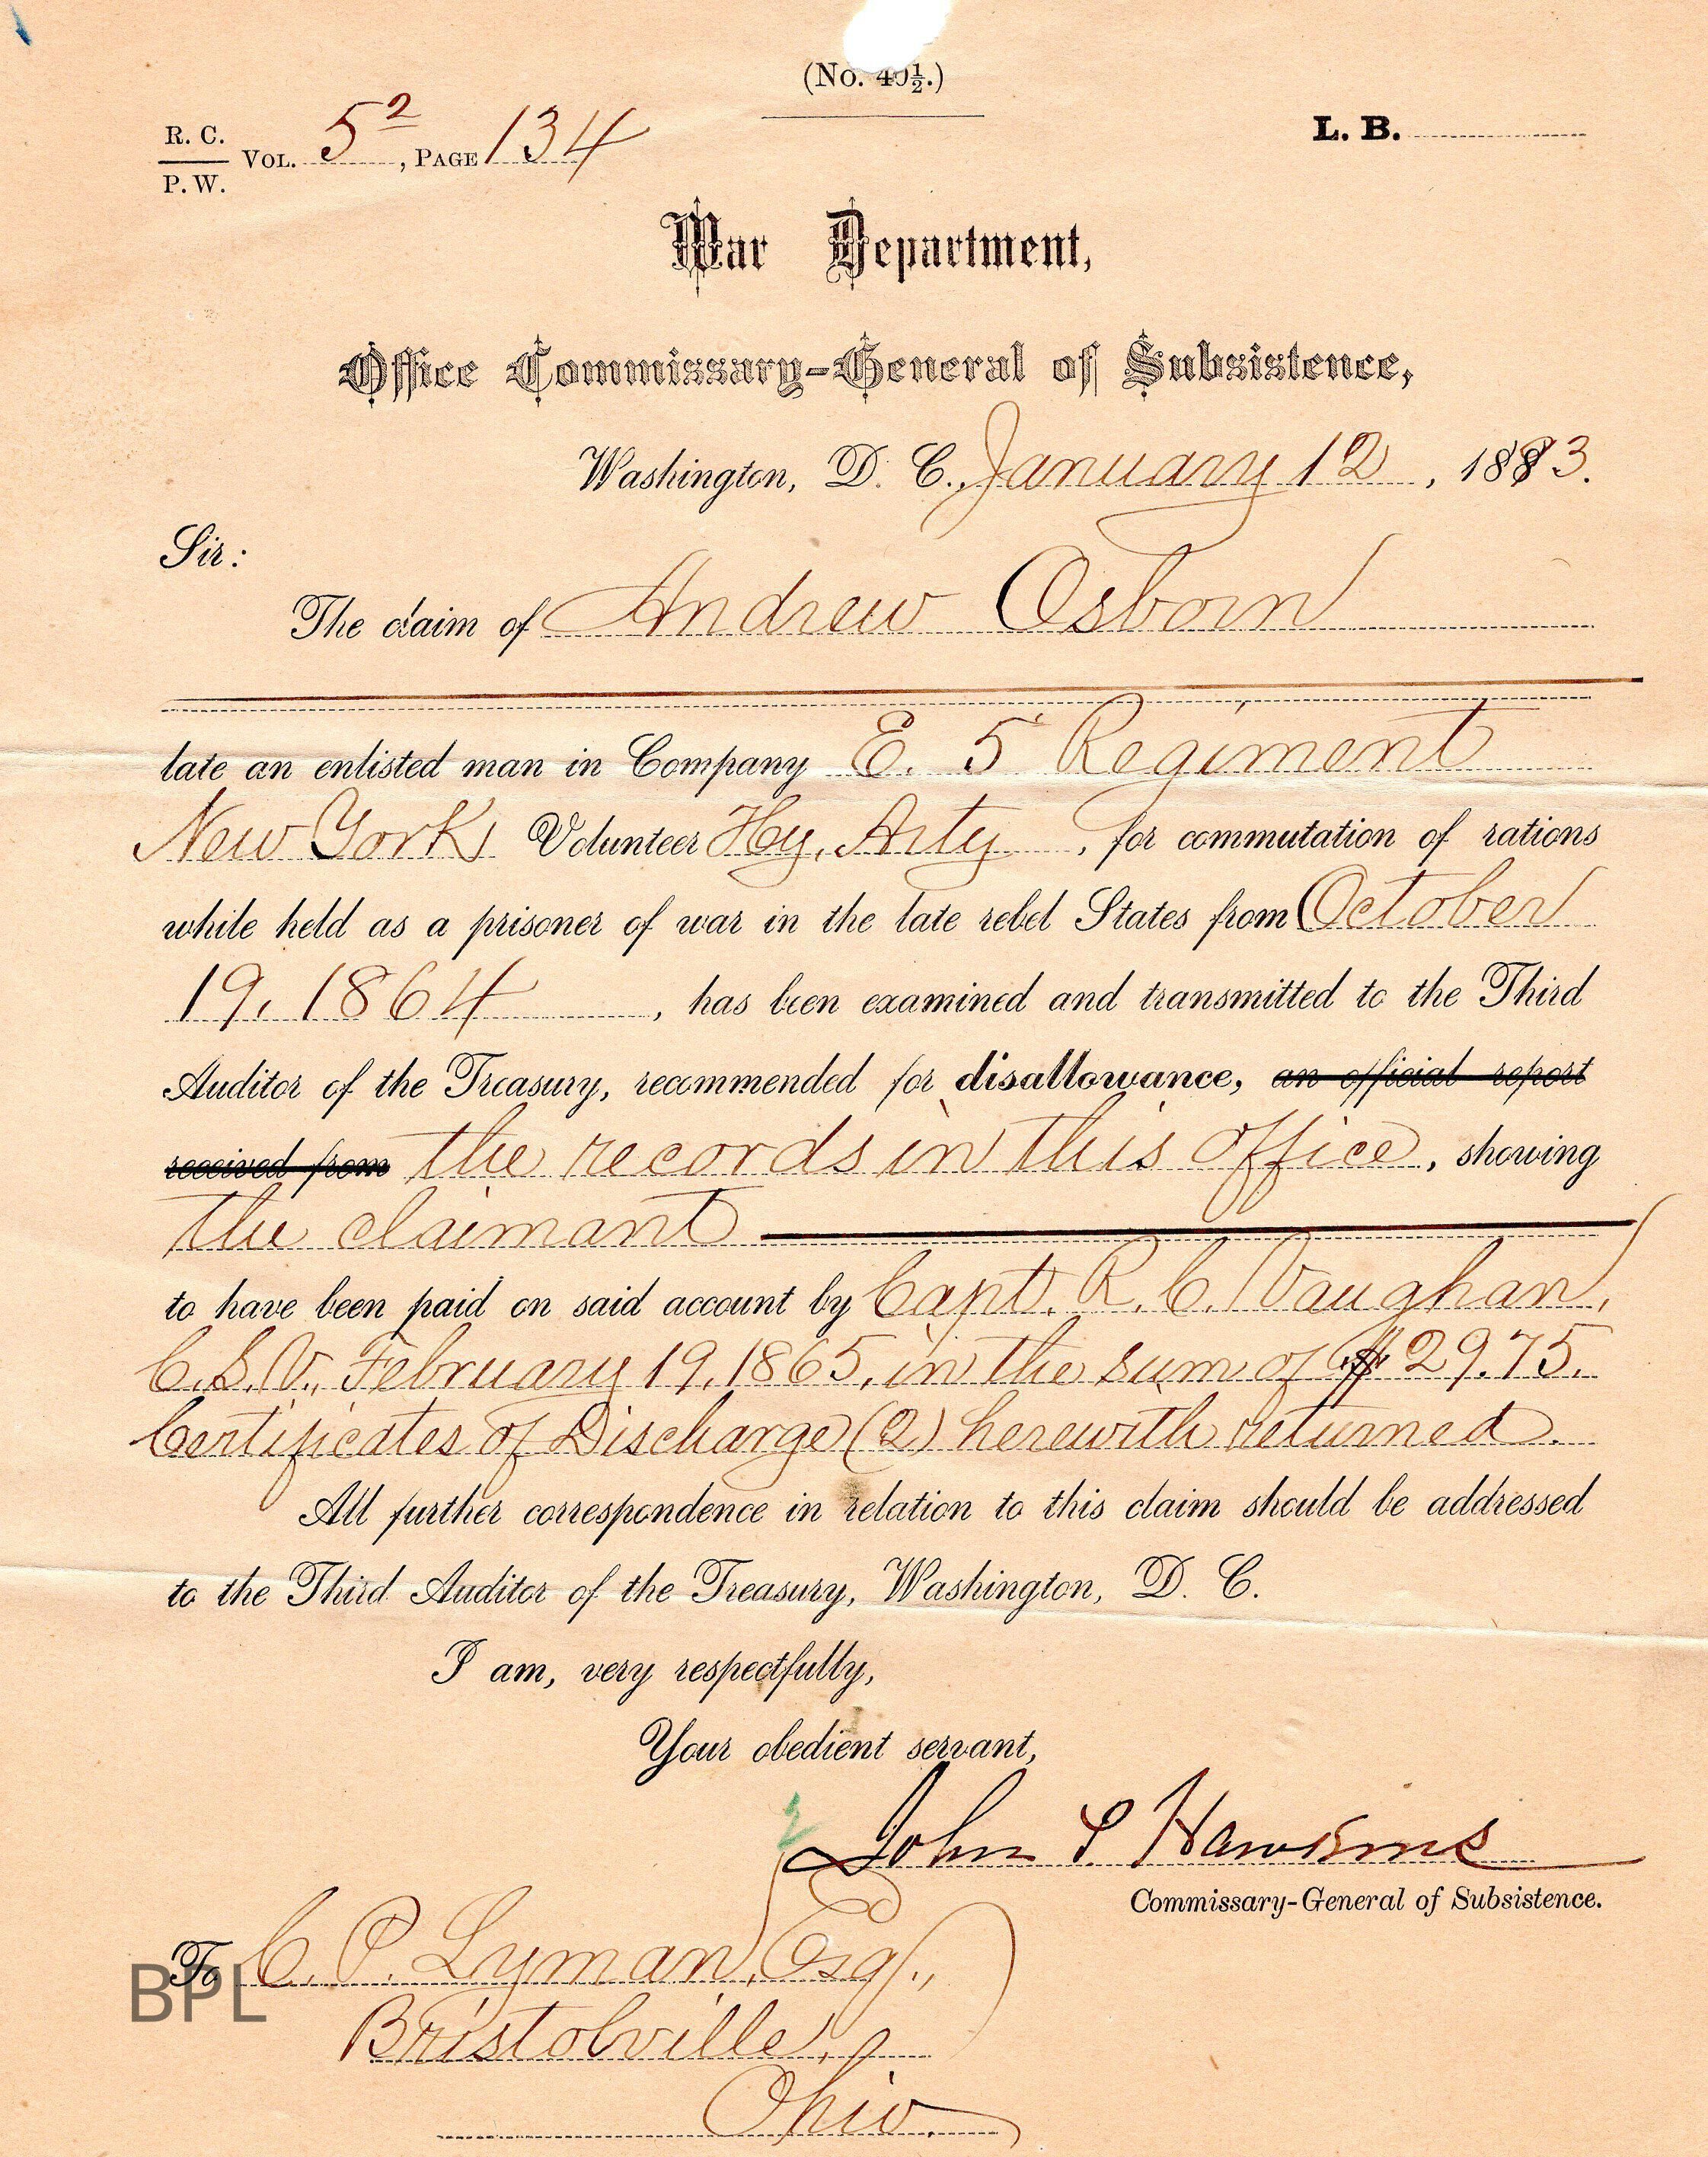 (No. 40½.)
R. C. / P. W. VOL. 5², PAGE 134
L. B.
War Department,
Office Commissary-General of Subsistence,
Washington, D. C., January 12, 1883.
Sir:
The claim of Andrew Osborn
late an enlisted man in Company E. 5 Regiment
New York Volunteer Hy. Arty, for commutation of rations
while held as a prisoner of war in the late rebel States from October
19, 1864, has been examined and transmitted to the Third
Auditor of the Treasury, recommended for disallowance, an official report
received from the records in this office, showing
the claimant
to have been paid on said account by Capt. R. C. Vaughan,
C. S. V., February 19, 1865, in the sum of $29.75.
Certificates of Discharge (2) herewith returned.
All further correspondence in relation to this claim should be addressed
to the Third Auditor of the Treasury, Washington, D. C.
I am, very respectfully,
Your obedient servant,
John P Hawkins
Commissary-General of Subsistence.
To C. P. Lyman, Esq.,
BPL
Bristolville,
Ohio.